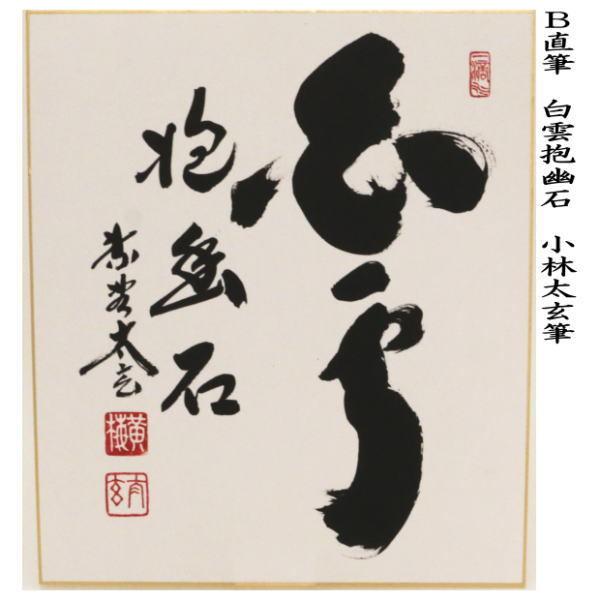 B直筆 白雲抱幽石 小林太玄筆
白雲
抱幽石
紫野太玄
黄梅
太玄